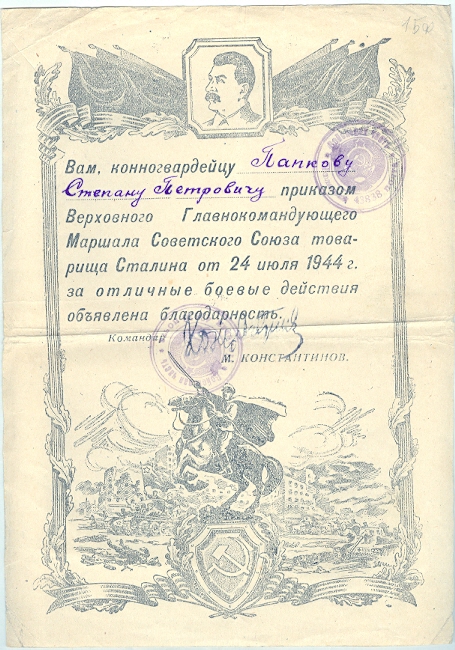 150
Вам, конногвардейцу Папкову
Степану Петровичу приказом
Верховного Главнокомандующего
Маршала Советского Союза това-
рища Сталина от 24 июля 1944 г.
за отличные боевые действия
объявлена благодарность.
Командир
М. КОНСТАНТИНОВ.